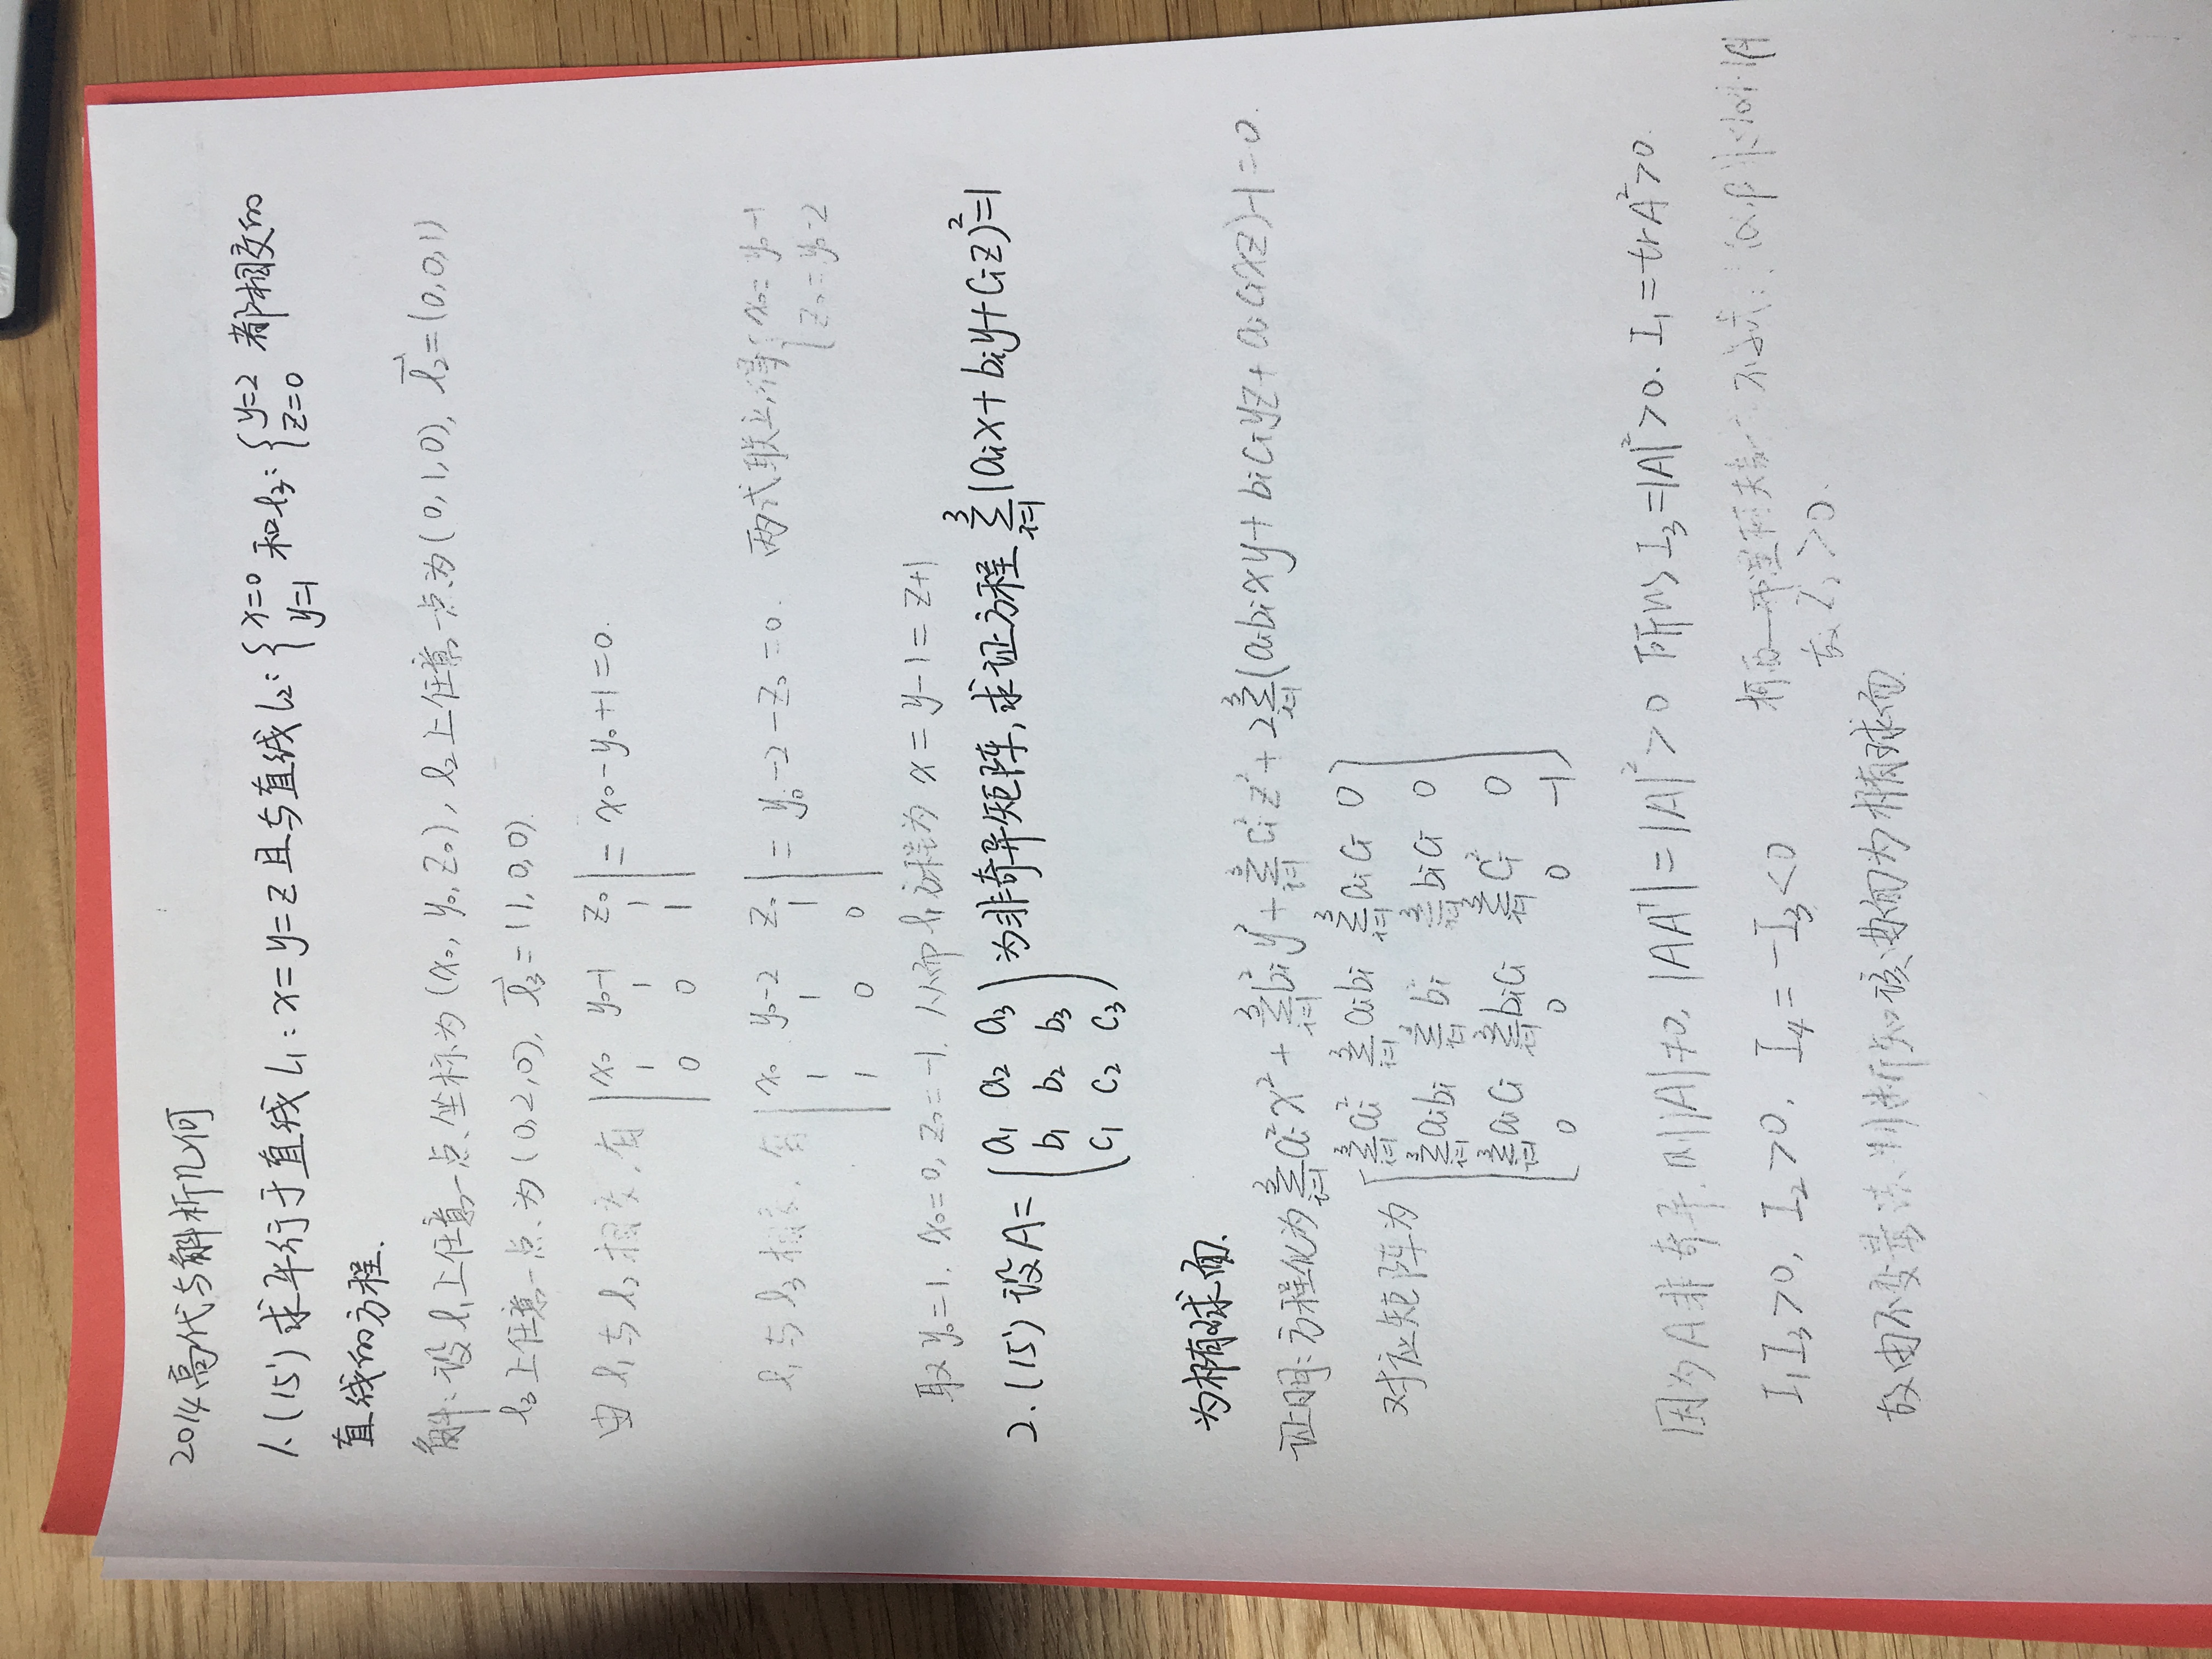 2014高代与解析几何
1.(15')求平行于直线L₁: x=y=z且与直线L₂: {x=0 y=1 和l₃: {y=2 z=0 都相交的
直线的方程.
解: 设l₁上任意一点坐标为(x₀, y₀, z₀), l₂上任意一点为(0,1,0), l₂=(0,0,1)
l₃上任意一点为(0,2,0), l₃=(1,0,0).
由l₁与l₂相交,有 |x₀ y₀-1 z₀; 1 1 1; 0 0 1| = x₀-y₀+1=0.
l₁与l₃相交,有 |x₀ y₀-2 z₀; 1 1 1; 1 0 0| = y₀-2-z₀=0. 两式联立,得{x₀=y₀-1 z₀=y₀-2
取y₀=1. x₀=0, z₀=-1. 从而l₁方程为 x=y-1=z+1
2.(15')设A=(a₁ a₂ a₃; b₁ b₂ b₃; c₁ c₂ c₃)为非奇异矩阵,求证方程 ∑³ᵢ₌₁(aᵢx+bᵢy+cᵢz)²=1
为椭球面.
证明: 方程化为∑³ᵢ₌₁aᵢ²x²+∑³ᵢ₌₁bᵢ²y²+∑³ᵢ₌₁cᵢ²z²+2∑³ᵢ₌₁(aᵢbᵢxy+bᵢcᵢyz+aᵢcᵢxz)-1=0.
对应矩阵为 [∑³ᵢ₌₁aᵢ² ∑³ᵢ₌₁aᵢbᵢ ∑³ᵢ₌₁aᵢcᵢ 0; ∑³ᵢ₌₁aᵢbᵢ ∑³ᵢ₌₁bᵢ² ∑³ᵢ₌₁bᵢcᵢ 0; ∑³ᵢ₌₁aᵢcᵢ ∑³ᵢ₌₁bᵢcᵢ ∑³ᵢ₌₁cᵢ² 0; 0 0 0 -1]
因为A非奇异,则|A|≠0, |AAᵀ|=|A|²>0 所以I₃=|A|²>0. I₁=trA²>0.
柯西 不等式:
I₁I₃>0, I₂>0, I₄=-I₃<0 故I₂>0.
故由不变量法判断知该方程为椭球面